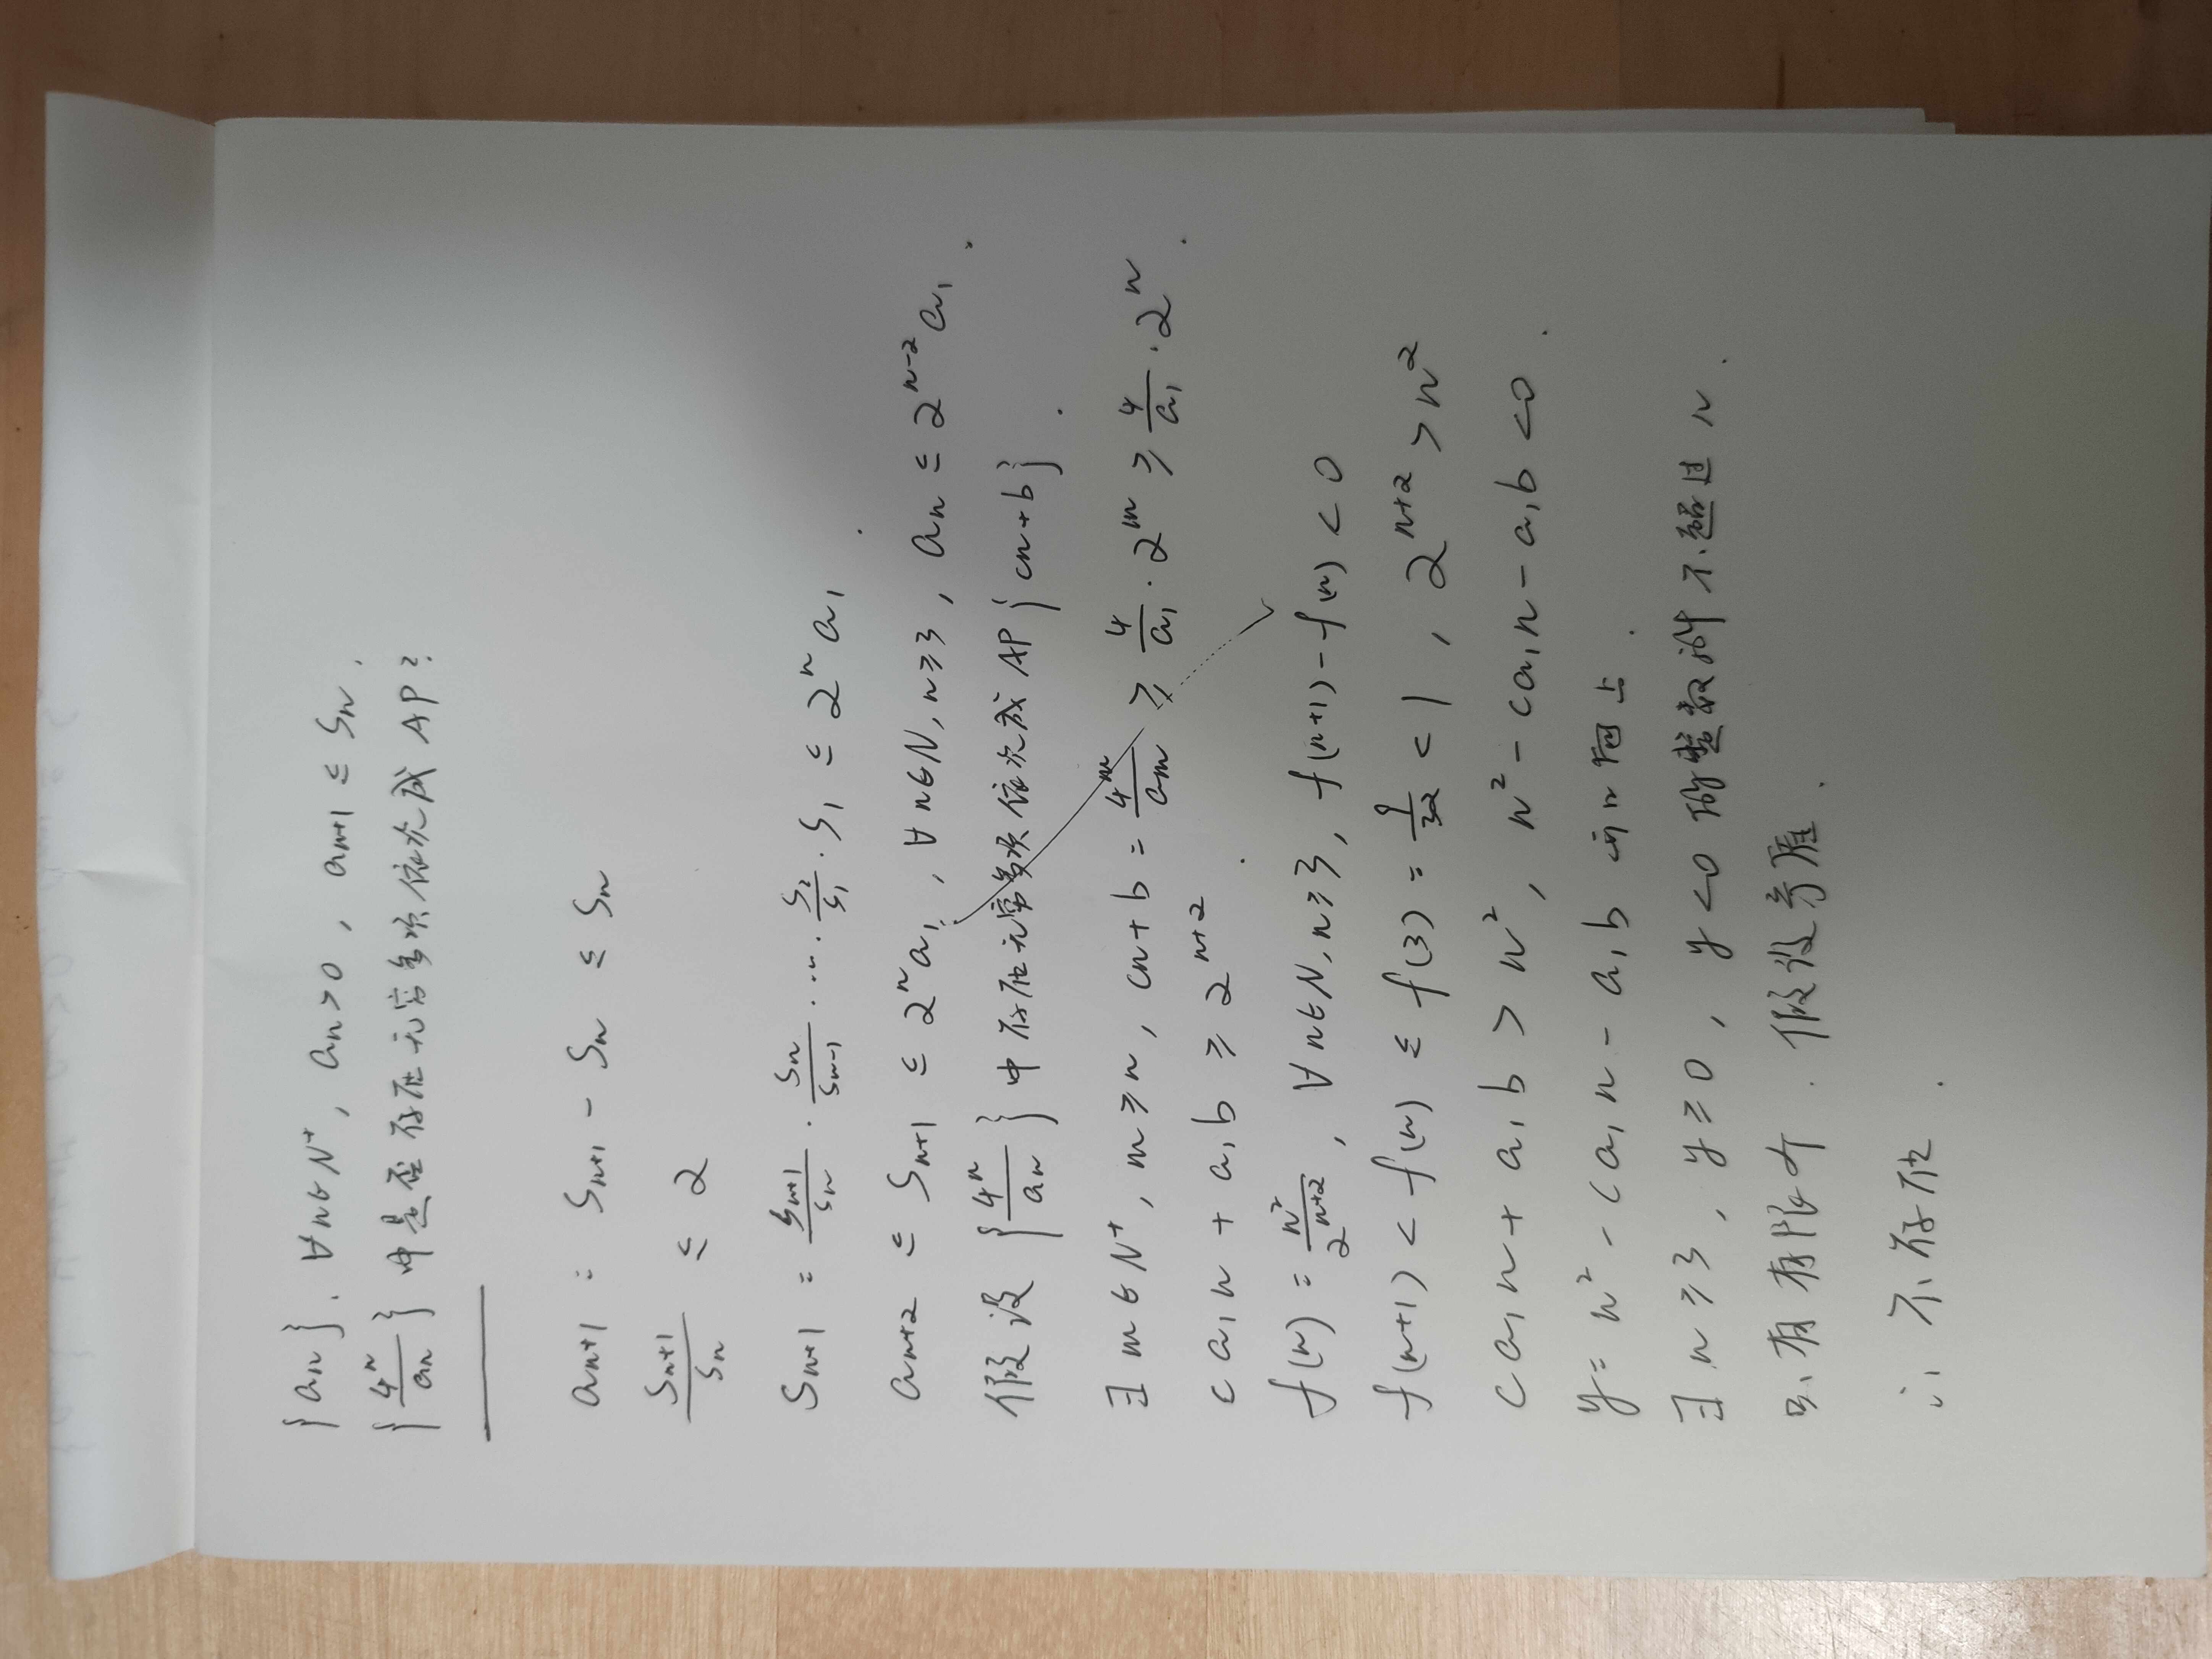 {an}. ∀n∈N⁺, an>0, an+1 ≤ Sn.
{4ⁿ/an} 中是否存在无穷多项依次成 AP?
an+1 = Sn+1 - Sn ≤ Sn
Sn+1/Sn ≤ 2
Sn+1 = Sn+1/Sn · Sn/Sn-1 · … · S2/S1 · S1 ≤ 2ⁿa1.
an+2 ≤ Sn+1 ≤ 2ⁿa1, ∀n∈N, n≥3, an ≤ 2ⁿ⁻²a1.
假设 {4ⁿ/an} 中存在无穷多项依次成 AP {cn+b}.
∃m∈N⁺, m≥n, cn+b = 4ᵐ/am ≥ 4/a1 · 2ᵐ ≥ 4/a1 · 2ⁿ.
ca1n + a1b ≥ 2ⁿ⁺².
f(n) = n²/2ⁿ⁺², ∀n∈N, n≥3, f(n+1)-f(n) < 0
f(n+1) < f(n) ≤ f(3) = 9/32 < 1, 2ⁿ⁺² > n²
ca1n + a1b > n², n² - ca1n - a1b < 0.
y = n² - ca1n - a1b 开口向上.
∃n≥3, y≥0, y<0 的整数解不超过 n.
只有有限个. 假设矛盾.
∴ 不存在.